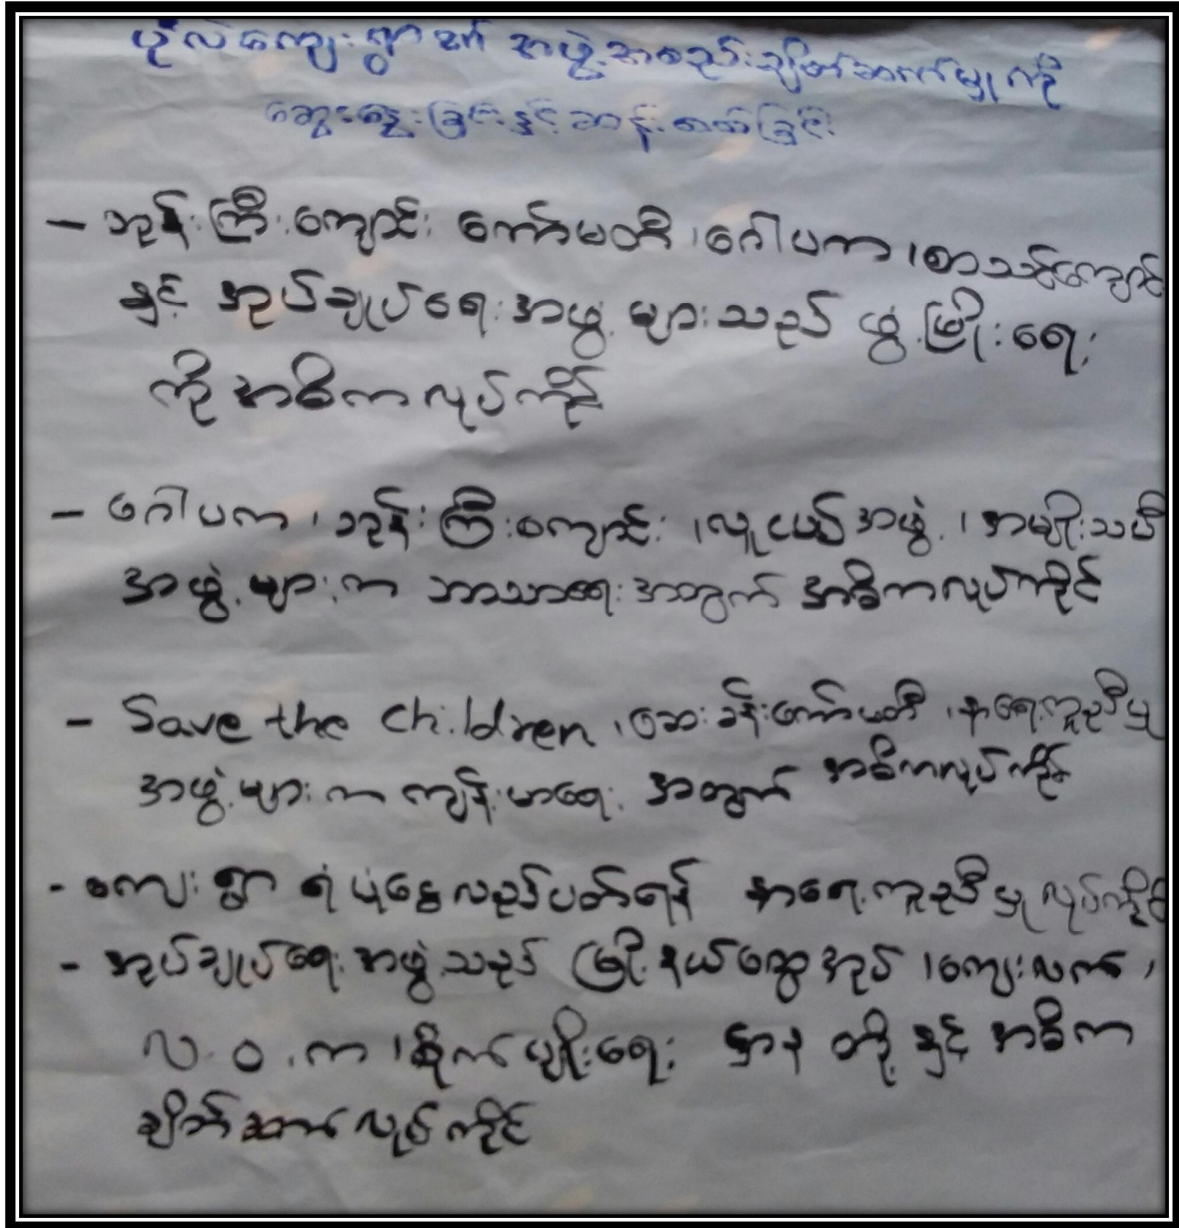 ကျေးရွာ၏ အဖွဲ့အစည်းချိတ်ဆက်မှုကို
ဆွေးနွေးခြင်းနှင့်ဆန်းစစ်ခြင်း
– ဘုန်းကြီးကျောင်း ကော်မတီ ၊ ဂေါပက ၊ စာသင်ကျောင်း
နှင့် အုပ်ချုပ်ရေးအဖွဲ့များသည် ဖွံ့ဖြိုးရေး
ကို အဓိကလုပ်ကိုင်
– ဂေါပက ၊ ဘုန်းကြီးကျောင်း ၊ လူငယ်အဖွဲ့ ၊ အမျိုးသမီး
အဖွဲ့များက ဘာသာရေးအတွက် အဓိကလုပ်ကိုင်
– Save the Children ၊ ဆေးခန်းကော်မတီ ၊ နာရေးကူညီမှု
အဖွဲ့များက ကျန်းမာရေး အတွက် အဓိကလုပ်ကိုင်
- ကျေးရွာ ရံပုံငွေလည်ပတ်ရန် နာရေးကူညီမှု လုပ်ကိုင်
- အုပ်ချုပ်ရေးအဖွဲ့သည် မြို့နယ်ထွေအုပ် ၊ ကျေးလက် ၊
လ.ဝ.က ၊ စိုက်ပျိုးရေး ဌာန တို့နှင့် အဓိက
ချိတ်ဆက်လုပ်ကိုင်